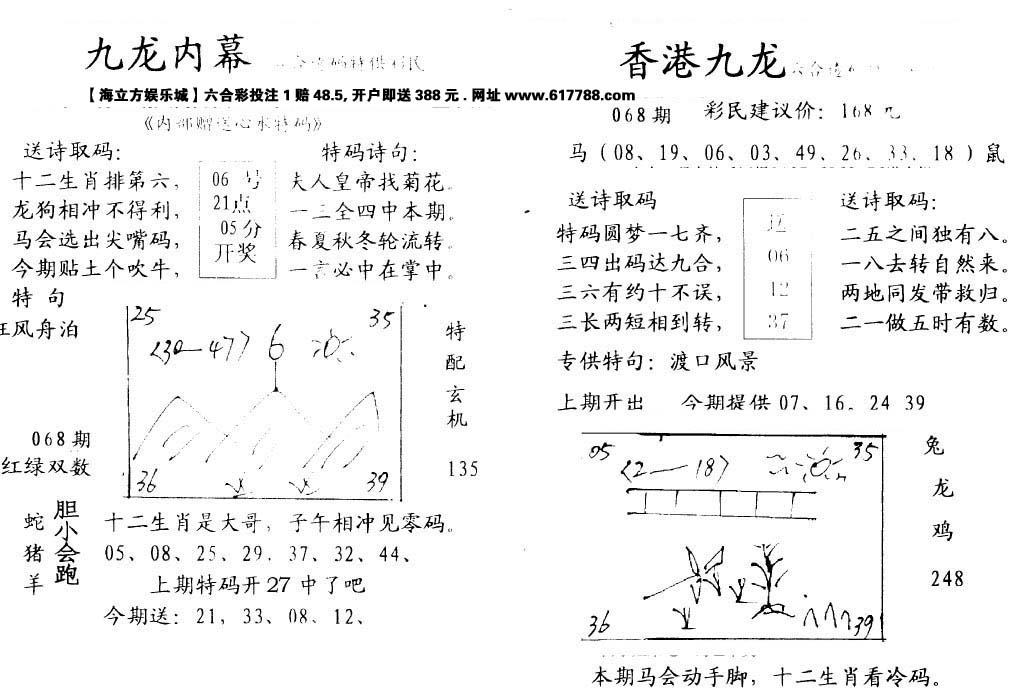 九龙内幕
【海立方娱乐城】六合彩投注1赔48.5,开户即送388元.网址www.617788.com
《内部赠送心水特码》
送诗取码:
十二生肖排第六,
龙狗相冲不得利,
马会选出尖嘴码,
今期贴土个吹牛,
06 号
21点
05分
开奖
特码诗句:
夫人皇帝找菊花。
一三全四中本期。
春夏秋冬轮流转。
一言必中在掌中。
特 句
狂风舟泊
068期
红绿双数
25
35
<30—47>
6
36
39
特
配
玄
机
135
蛇
猪
羊
胆小会跑
十二生肖是大哥,子午相冲见零码。
05、08、25、29.37、32、44、
上期特码开27中了吧
今期送:21,33、08.12、
香港九龙
068期 彩民建议价:168元
马(08、19、06、03、49、26、33、18)鼠
送诗取码
特码圆梦一七齐,
三四出码达九合,
三六有约十不误,
三长两短相到转,
送
06
12
37
送诗取码:
二五之间独有八。
一八去转自然来。
两地同发带救归。
二一做五时有数。
专供特句:渡口风景
上期开出 今期提供07、16.24 39
05
<2—18>
35
36
39
兔
龙
鸡
248
本期马会动手脚,十二生肖看冷码。